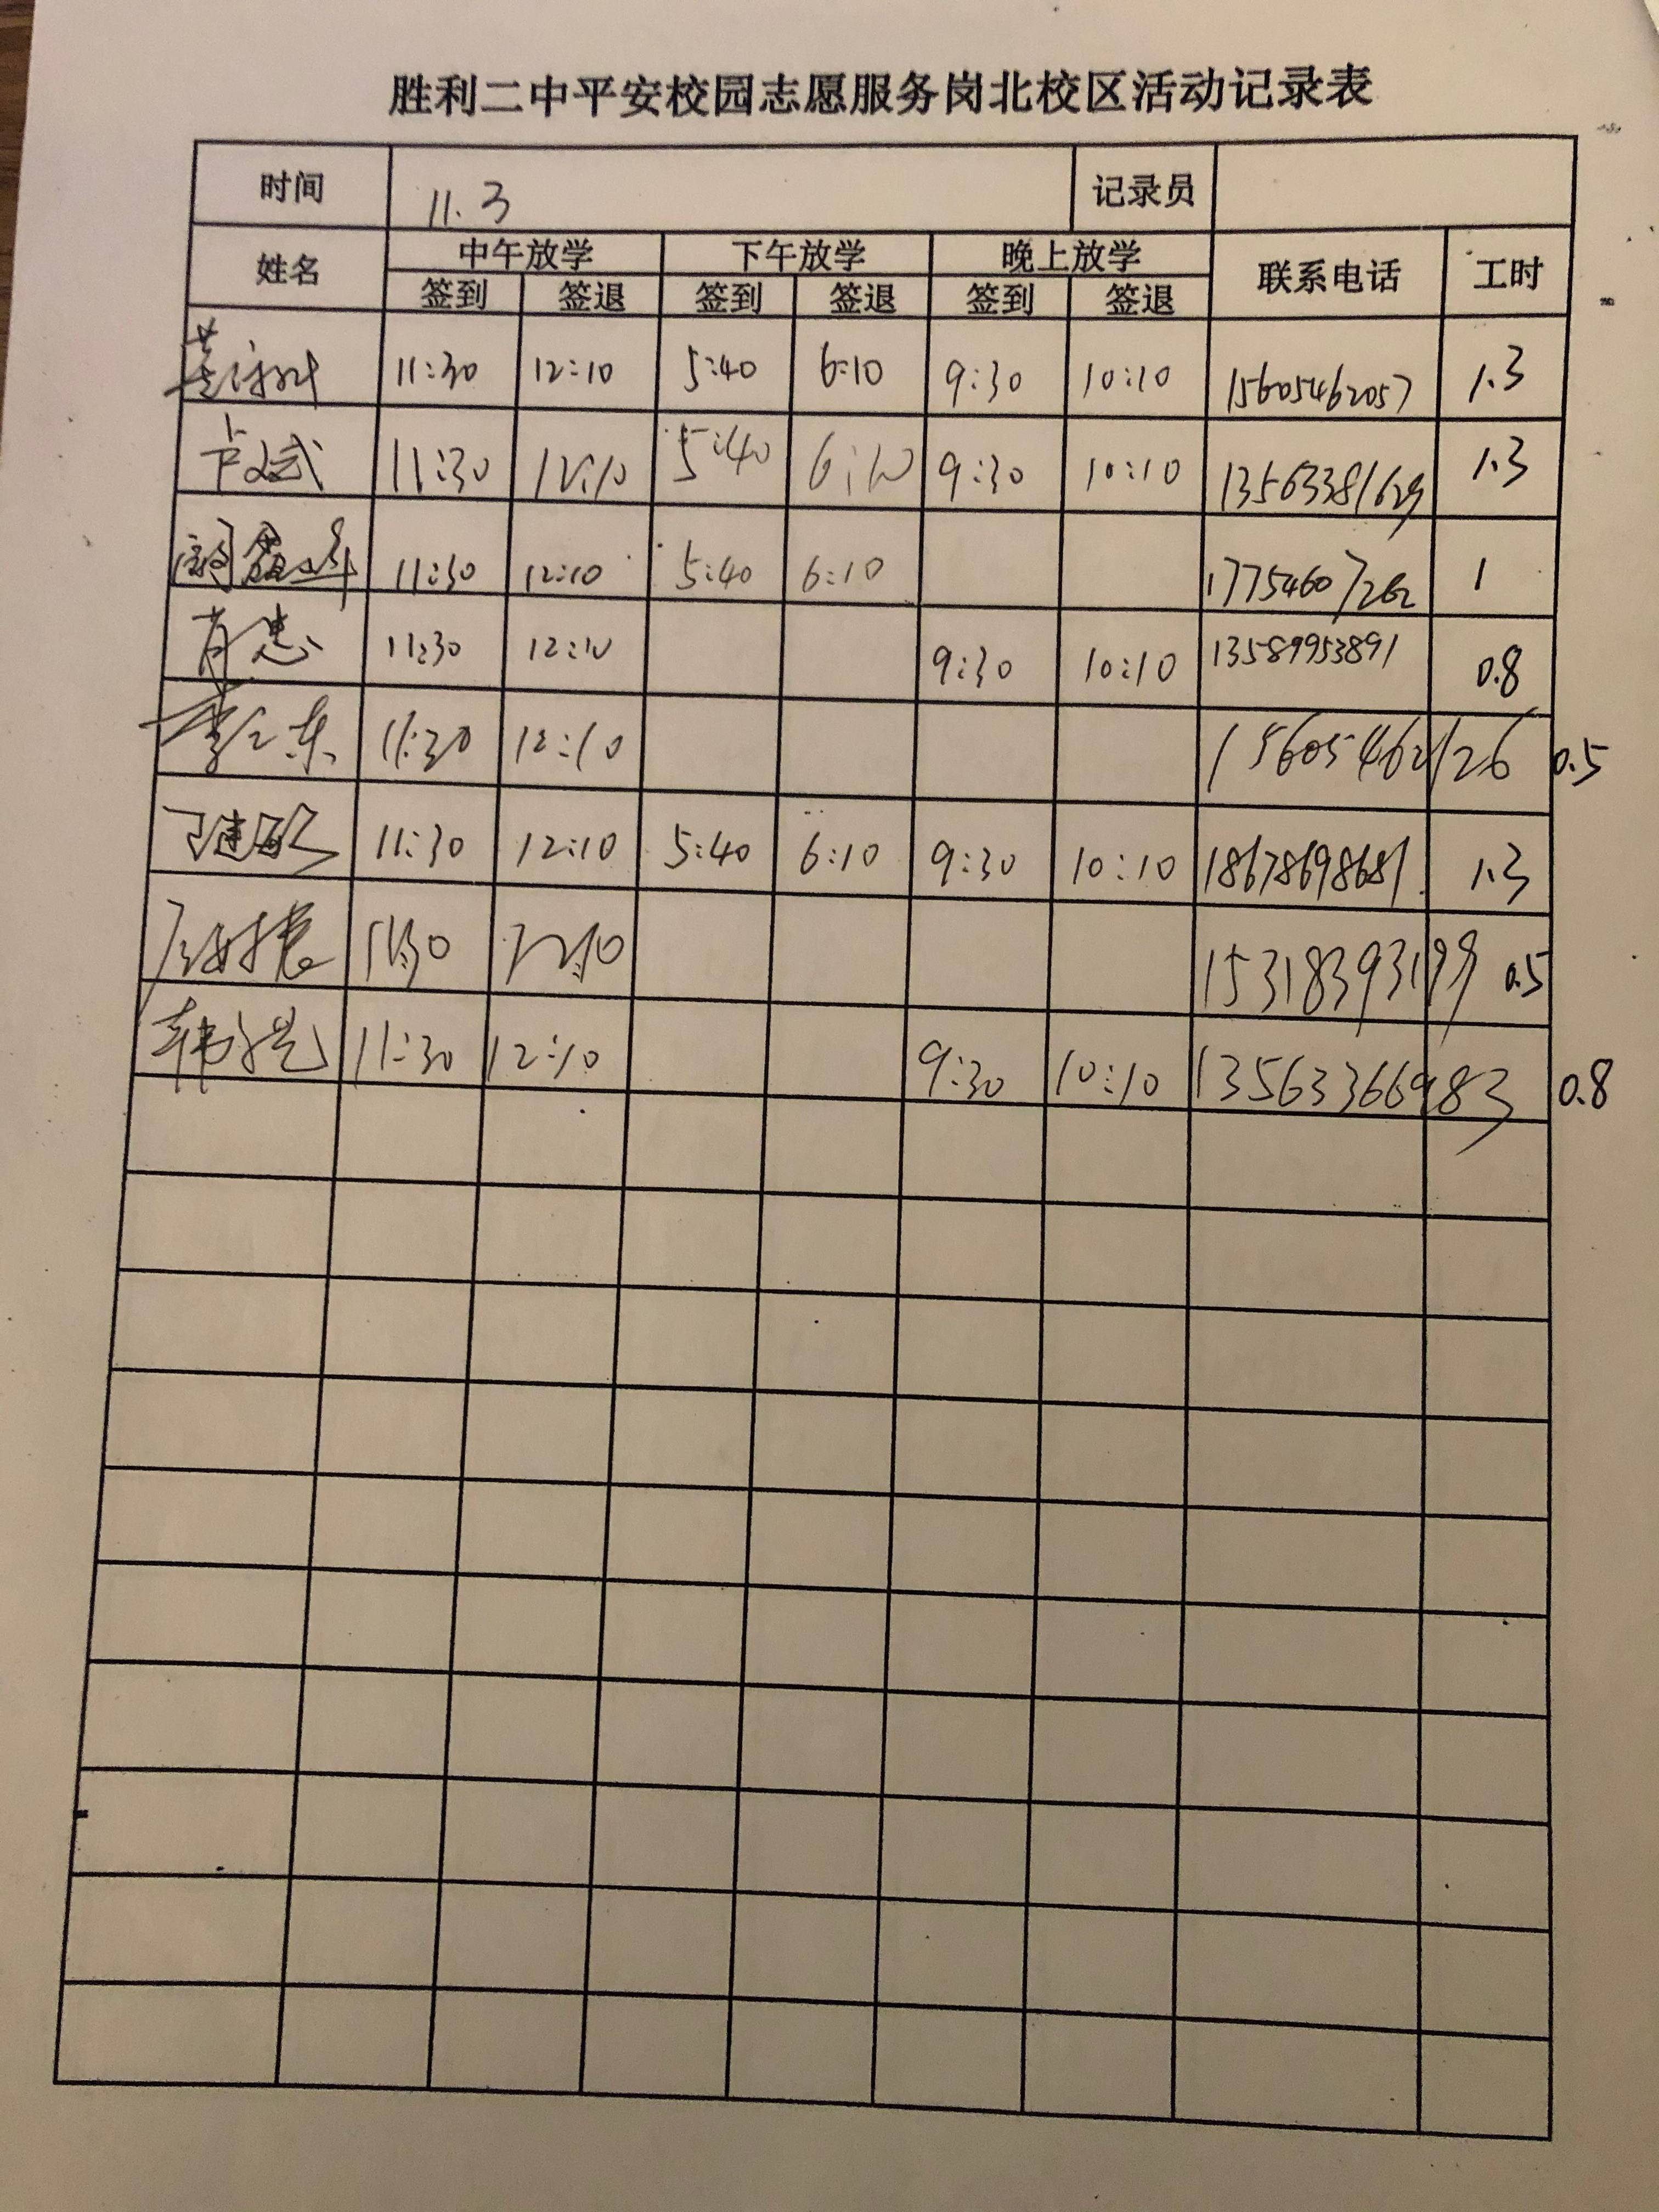 胜利二中平安校园志愿服务岗北校区活动记录表
时间 11.3 记录员
姓名 中午放学 下午放学 晚上放学 联系电话 工时
签到 签退 签到 签退 签到 签退
11:30 12:10 5:40 6:10 9:30 10:10 15605462057 1.3
卞文武 11:30 12:10 5:40 6:10 9:30 10:10 13563381629 1.3
11:30 12:10 5:40 6:10 17754607262 1
11:30 12:10 9:30 10:10 13589953891 0.8
11:30 12:10 15605462126 0.5
11:30 12:10 5:40 6:10 9:30 10:10 18678698681 1.3
11:30 12:10 15318393199 0.5
韩 11:30 12:10 9:30 10:10 13563366983 0.8